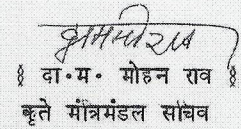 दा॰म॰ मोहन राव
कृते मंत्रिमंडल सचिव